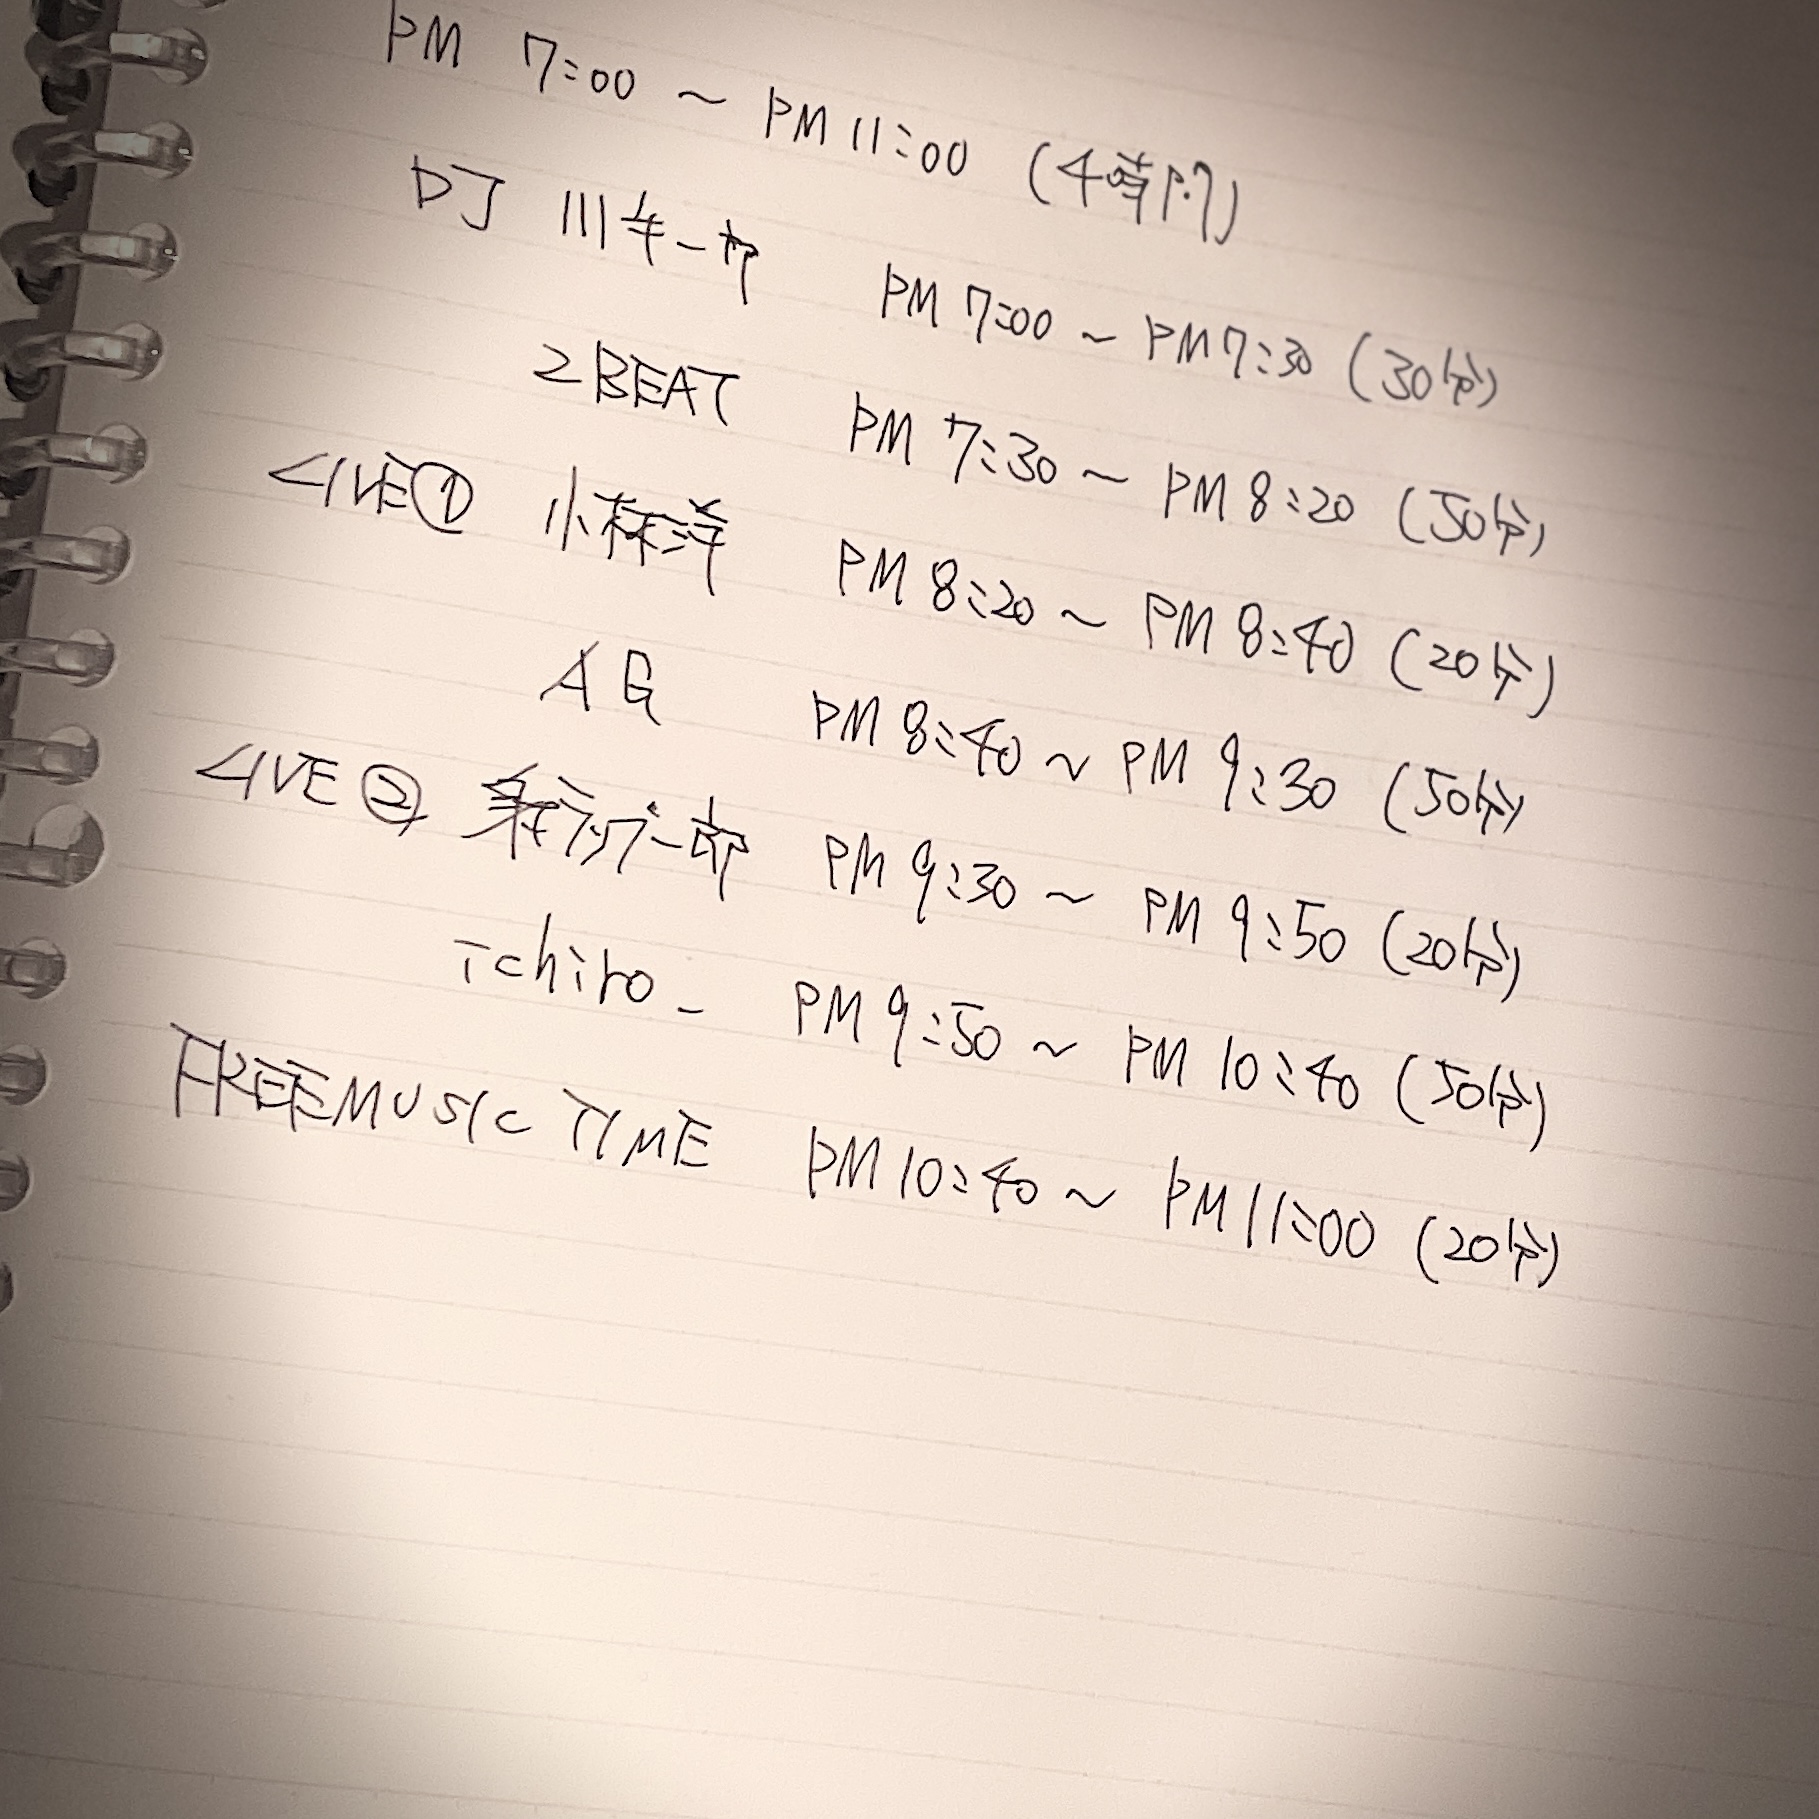 PM 7:00 ~ PM 11:00 (4時間)
DJ 川キ一郎 PM 7:00 ~ PM 7:30 (30分)
2BEAT PM 7:30 ~ PM 8:20 (50分)
LIVE① 小林洋 PM 8:20 ~ PM 8:40 (20分)
AG PM 8:40 ~ PM 9:30 (50分)
LIVE② PM 9:30 ~ PM 9:50 (20分)
ichiro_ PM 9:50 ~ PM 10:40 (50分)
FREEMUSIC TIME PM 10:40 ~ PM 11:00 (20分)